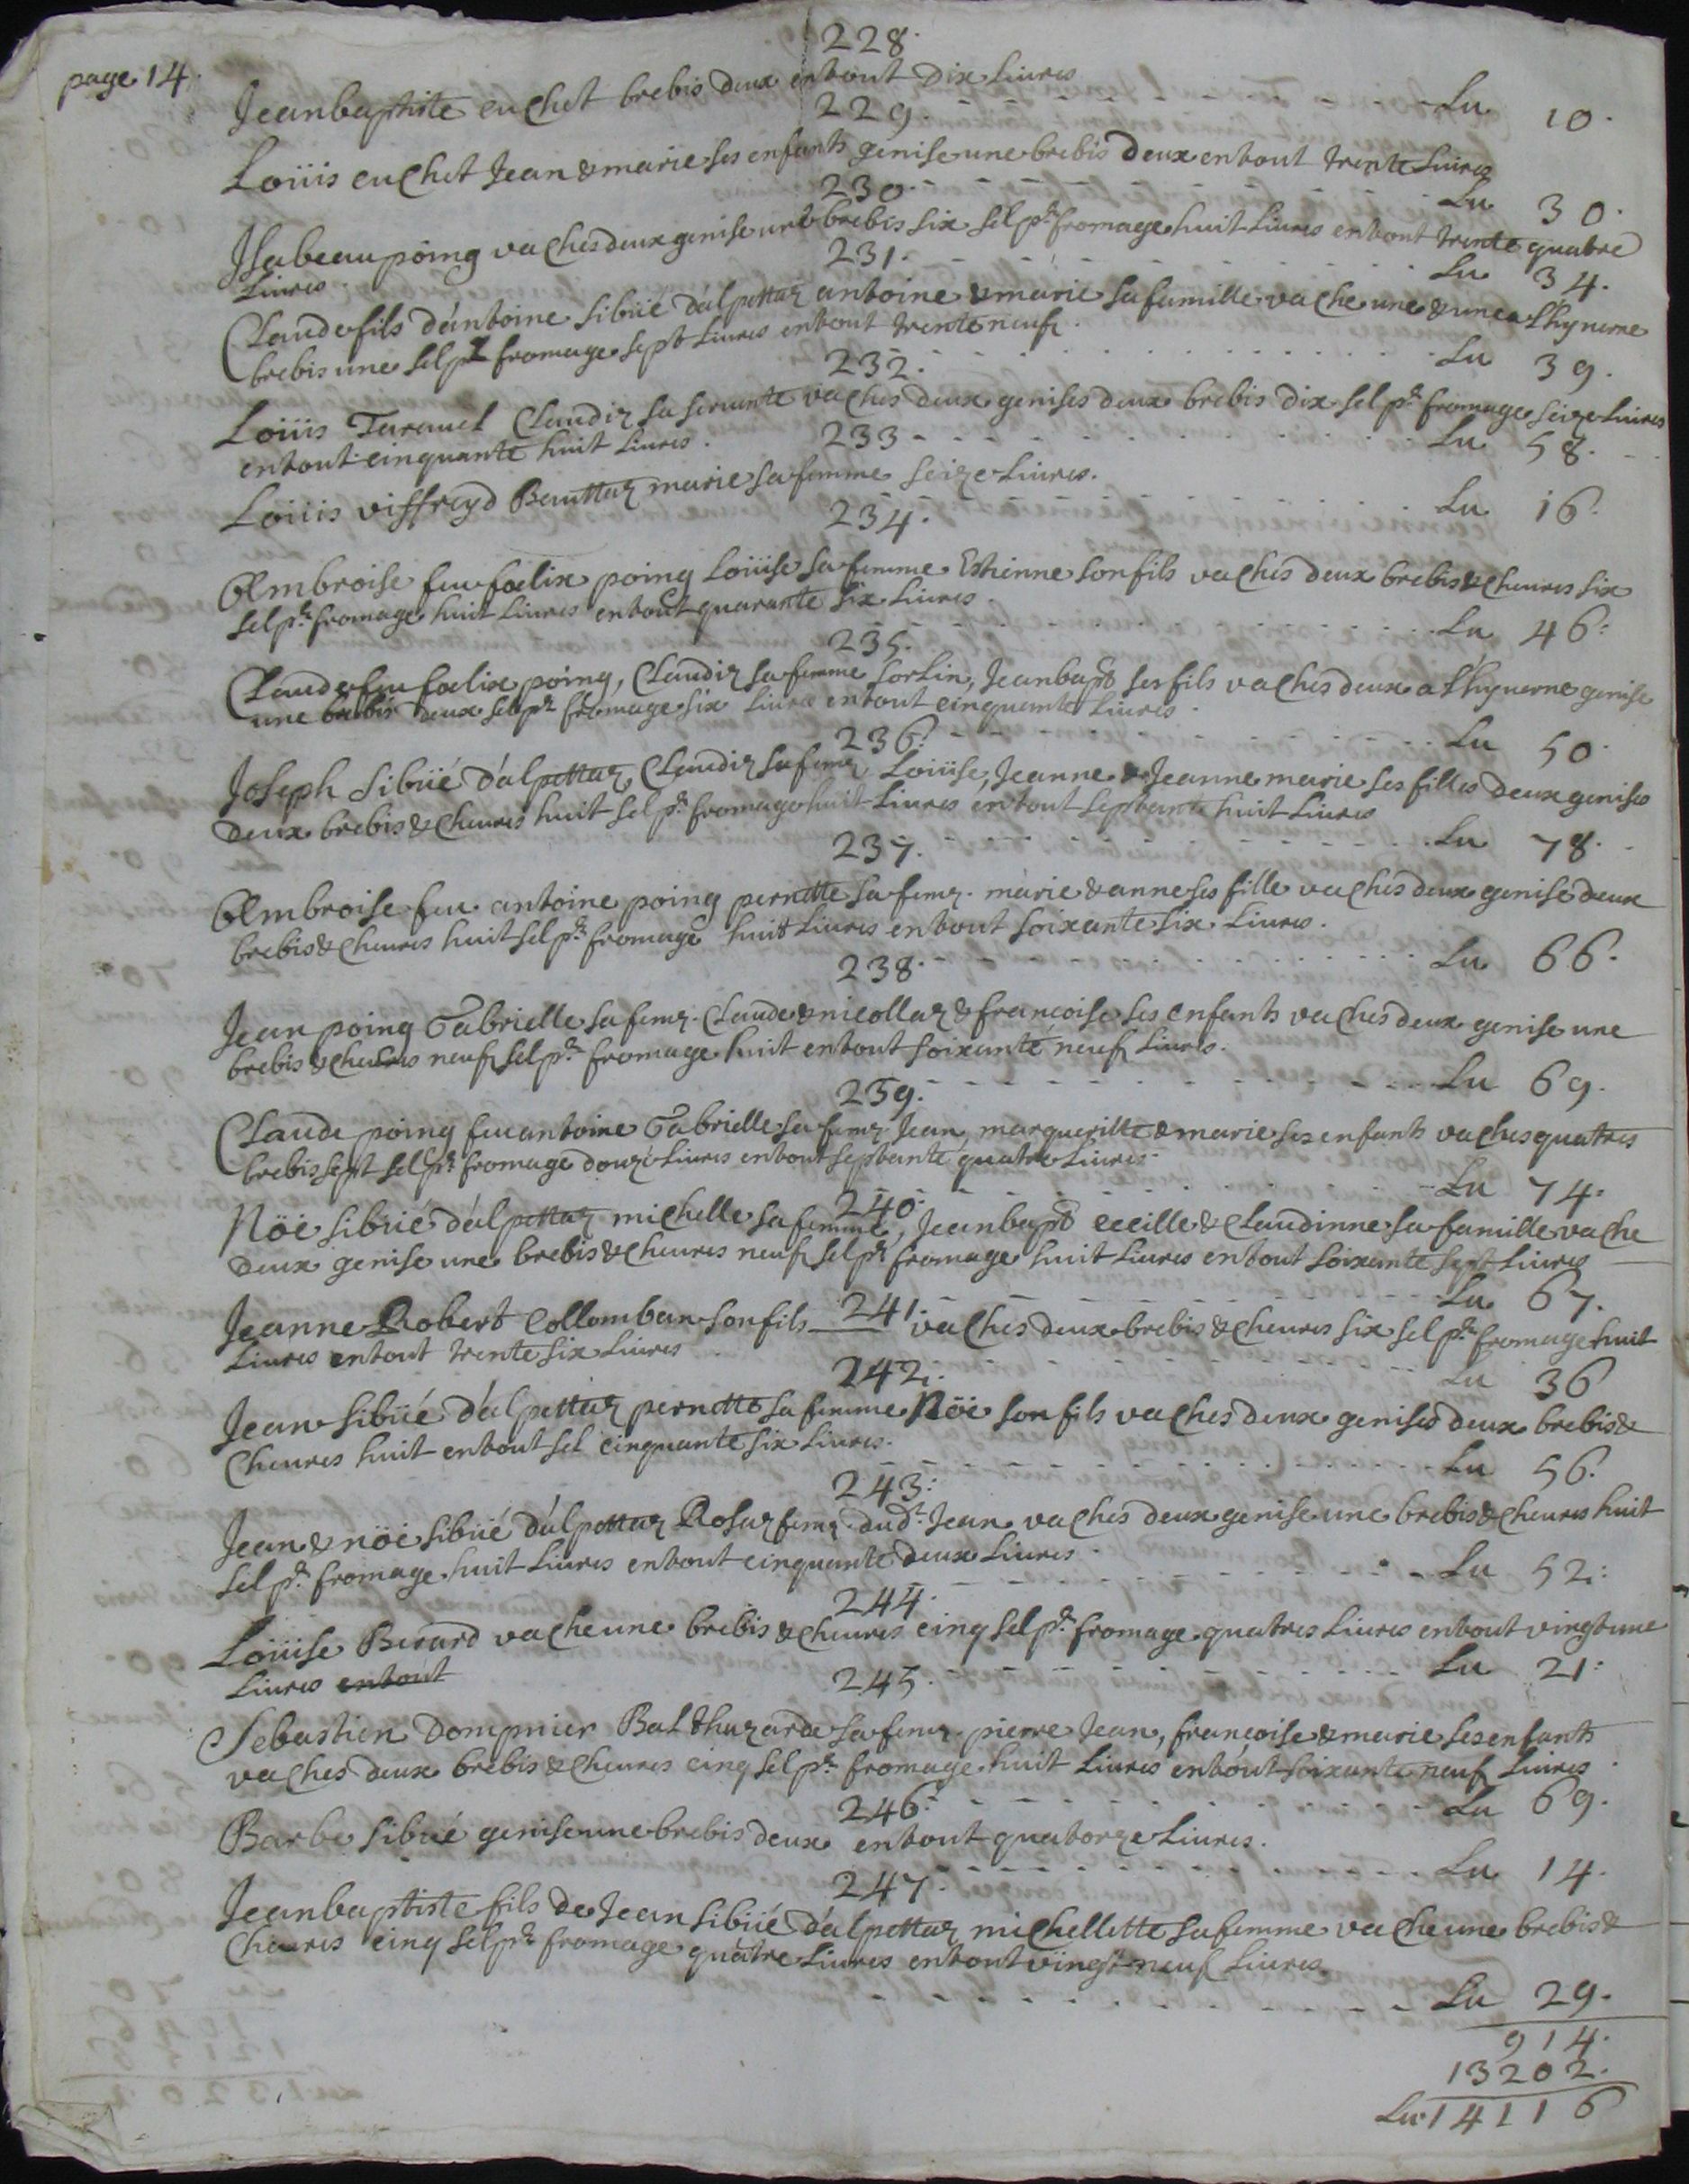 page 14.
228.
Jeanbaptiste cuchet brebis deux entout dix Liures
Lu 10.
229.
Loüis cuchet Jean & marie ses enfants genise une brebis deux entout trente Liures
Lu 30.
230.
Jsabeau poing vaches deux genise une brebis six sel pr fromage huit Liures entout trente quatre
Liures.
Lu 34.
231.
Claude fils d'antoine sibüé d'alpettaz antoine & marie sa famille vache une & une a Lhyuerne
brebis une sel pr fromage sept Liures entout trente neuf.
Lu 39.
232.
Loüis Tarauel Claudiz sa seruante vaches deux genises deux brebis dix sel pr fromage seize Liures
entout cinquante huit Liures.
Lu 58.
233
Loüis viffreyd Beauttaz marie sa femme seize Liures.
Lu 16.
234.
Ambroise feu foelix poing Loüise sa femme Estienne son fils vaches deux brebis & cheures six
sel pr fromage huit Liures entout quarante six Liures.
Lu 46.
235.
Claude feu foelix poing, Claudiz sa femme sorlin, Jeanbapt ses fils vaches deux a Lhyuerne genise
une brebis deux sel pr fromage six Liures entout cinquante Liures.
Lu 50.
236.
Joseph sibüé d'alpettaz, Claudiz sa femz Loüise, Jeanne & Jeanne marie ses filles deux genises
deux brebis & cheures huit sel pr fromage huit Liures entout septante huit Liures
Lu 78.
237.
Ambroise feu antoine poing pernette sa femz. marie & anne ses fille vaches deux genise deux
brebis & cheures huit sel pr fromage huit Liures entout soixante six Liures.
Lu 66.
238.
Jean poing Gabrielle sa femz. Claude & nicollaz & francoise ses enfants vaches deux genise une
brebis & cheures neuf sel pr fromage huit entout soixante neuf Liures.
Lu 69.
239.
Claude poing feu antoine Gabrielle sa femz Jean margueritte & marie ses enfants vaches quatres
brebis sept sel pr fromage douze Liures entout septante quatre Liures.
Lu 74.
240.
Nöé sibüé d'alpettaz michelle sa femme, Jeanbapt cecille & Claudinne sa famille vache
deux genise une brebis & cheures neuf sel pr fromage huit Liures entout soixante sept Liures
Lu 67.
241.
Jeanne Robert Collomban son fils vaches deux brebis & cheures six sel pr fromage huit
Liures entout trente six Liures
Lu 36
242.
Jean sibüé d'alpettaz pernette sa femme Nöé son fils vaches deux genises deux brebis &
Cheures huit entout sel cinquante six Liures.
Lu 56.
243.
Jean & nöé sibüé d'alpettaz Rosaz femz dudt Jean vaches deux genise une brebis & cheures huit
sel pr fromage huit Liures entout cinquante deux Liures.
Lu 52.
244.
Loüise Berard vache une brebis & cheures cinq sel pr fromage quatres Liures entout vingt une
Liures entout
Lu 21.
245.
Sebastien Dompnier Balthazarde sa femz. pierre Jean, françoise & marie ses enfants
vaches deux brebis & cheures cinq sel pr fromage huit Liures entout soixante neuf Liures
Lu 69.
246.
Barbe sibüé genise une brebis deux entout quatorze Liures.
Lu 14.
247.
Jeanbaptiste fils de Jean sibüé d'alpettaz michellette sa femme vache une brebis &
Cheures cinq sel pr fromage quatre Liures entout vingt neuf Liures.
Lu 29.
914.
13202.
Lu. 14116